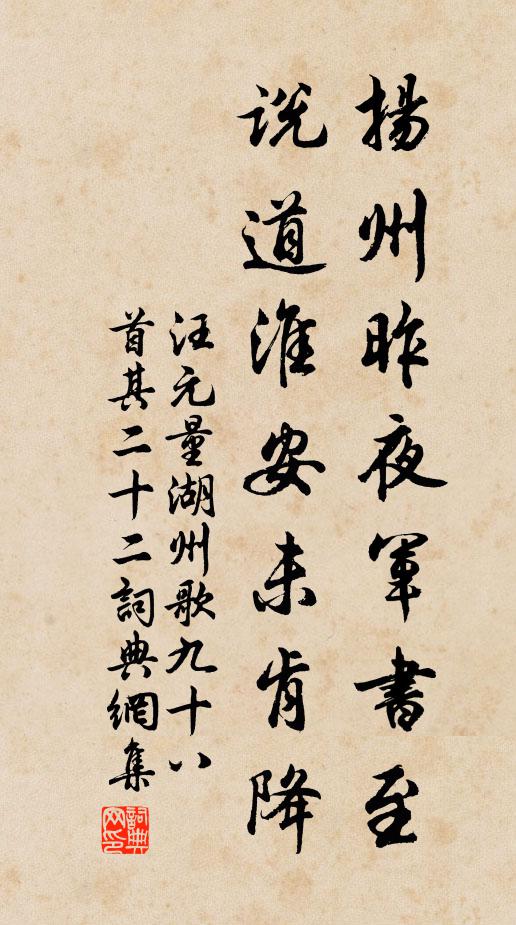 揚州昨夜軍書至
說道淮安未肯降
汪元量湖州歌九十八
首其二十二詞典網集
詞典
网印